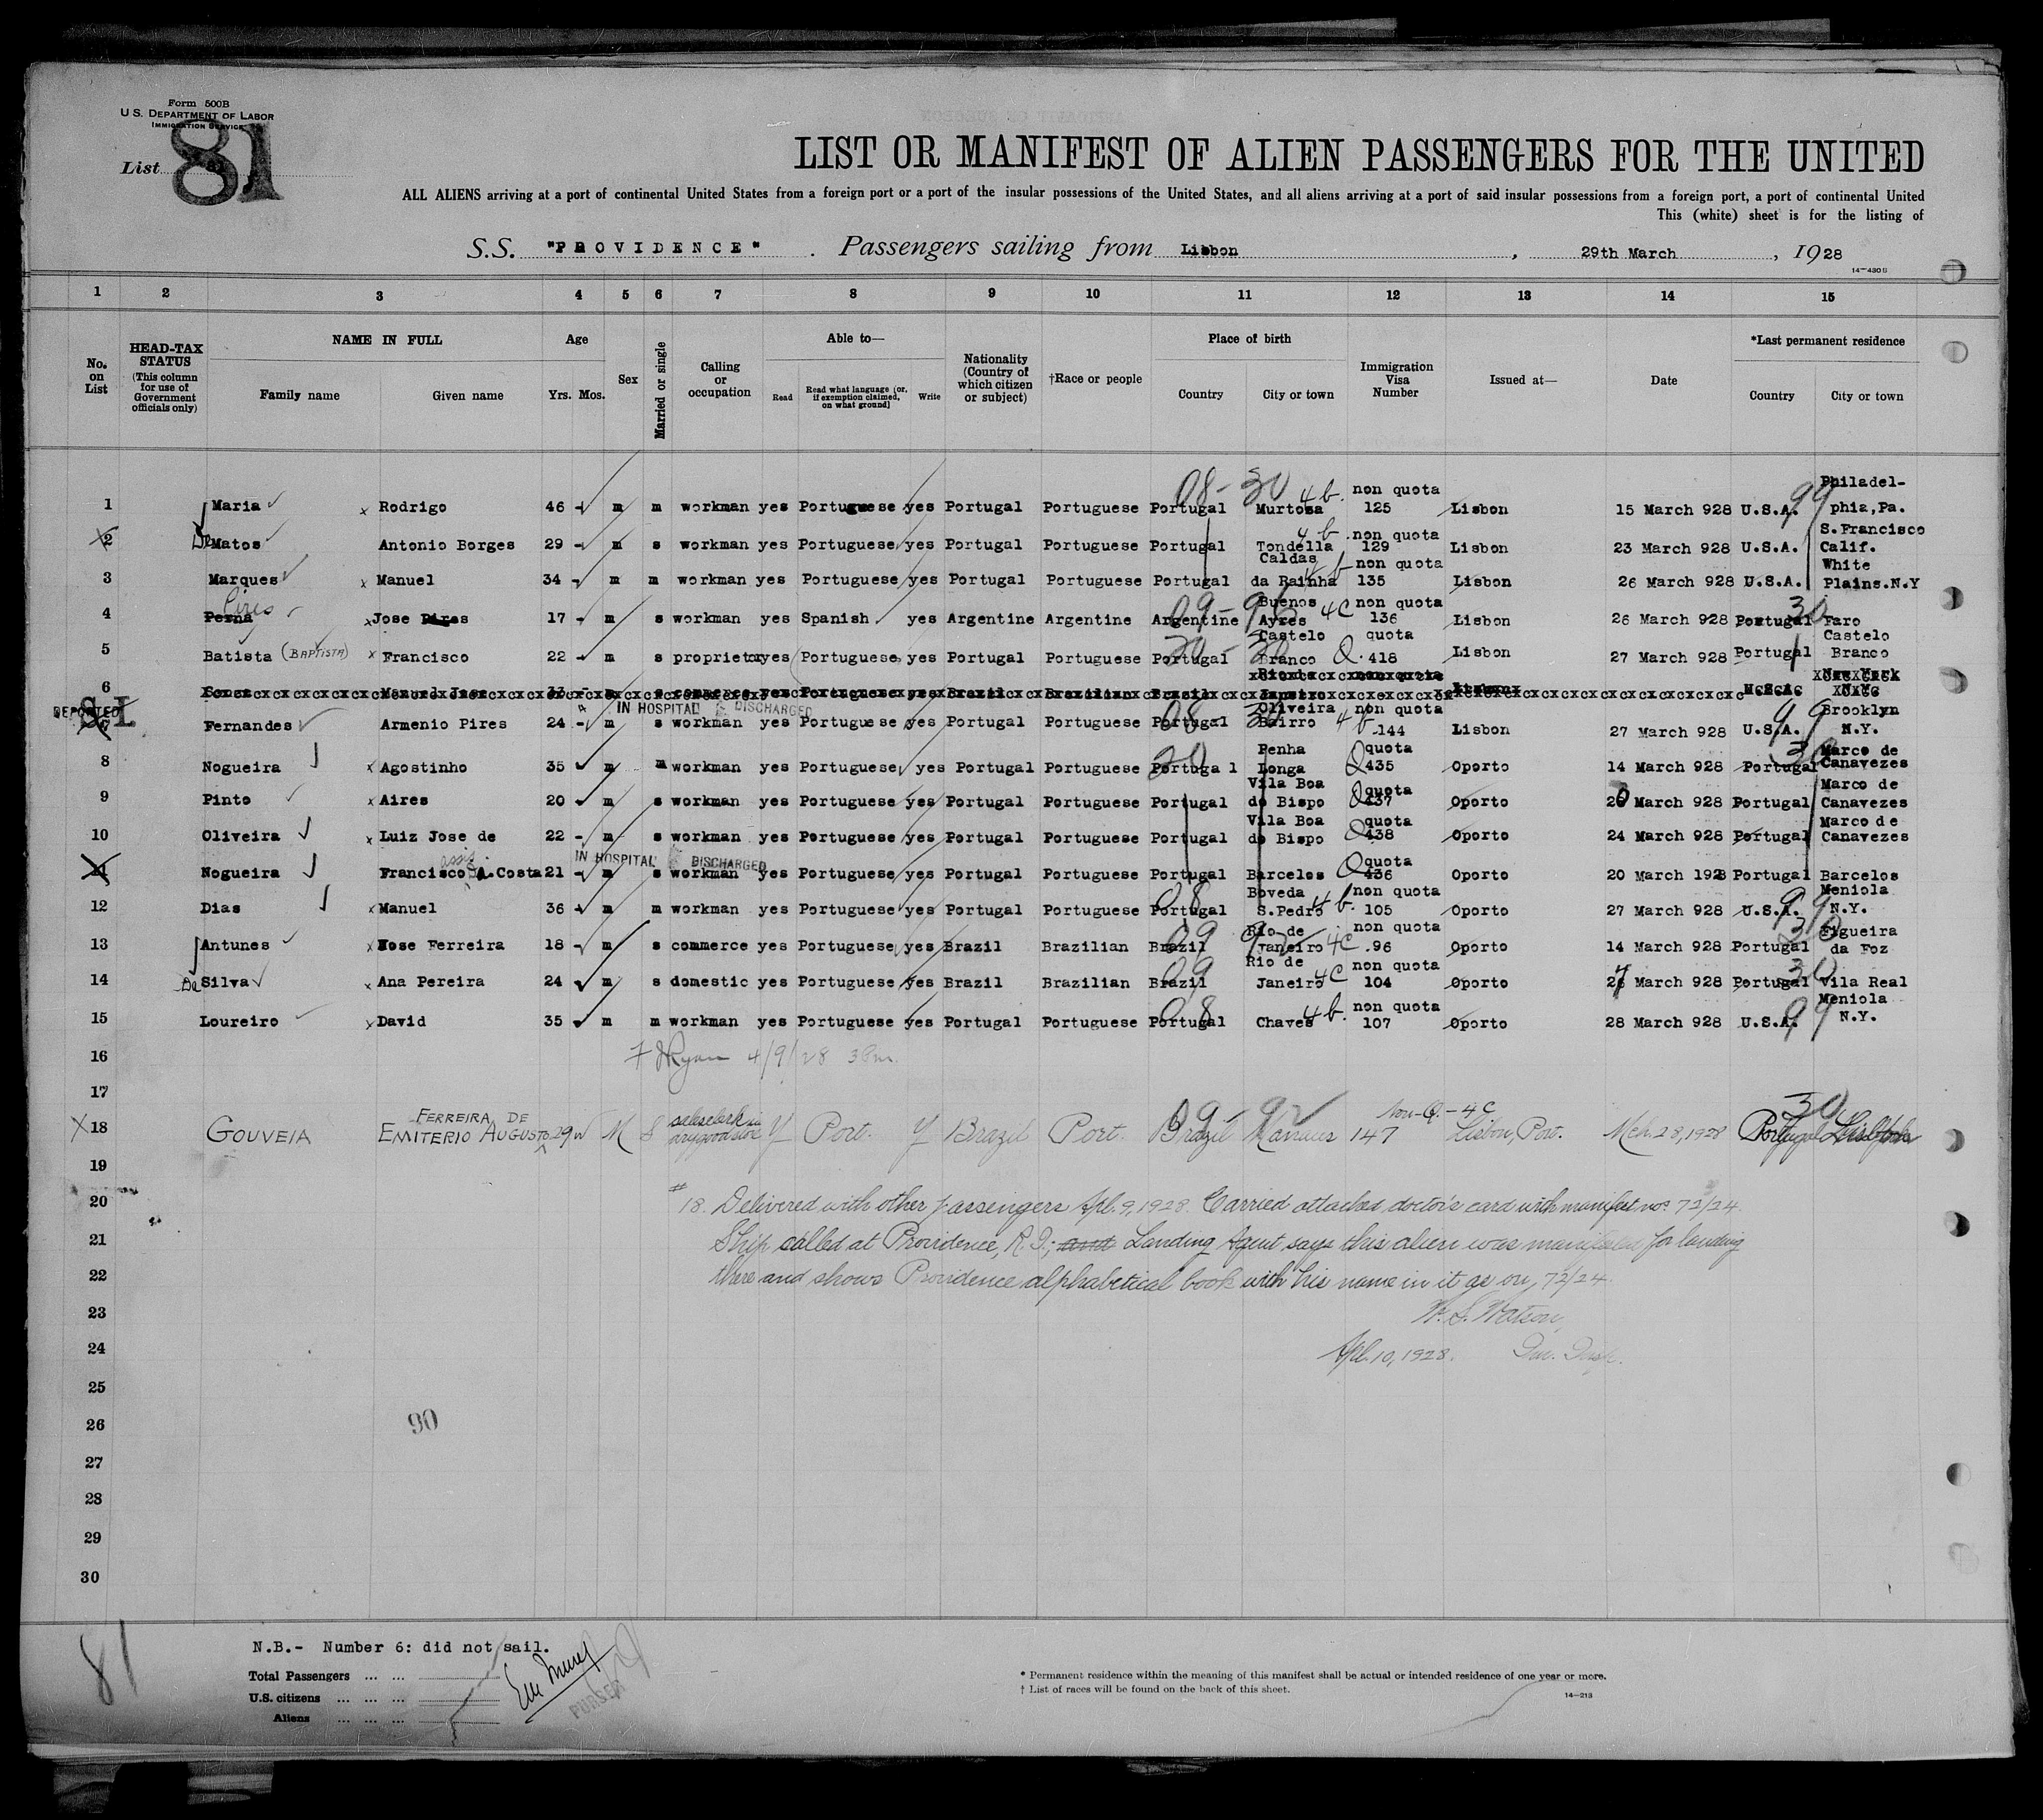 Form 500B
U.S. DEPARTMENT OF LABOR
IMMIGRATION SERVICE
List 81
LIST OR MANIFEST OF ALIEN PASSENGERS FOR THE UNITED
ALL ALIENS arriving at a port of continental United States from a foreign port or a port of the insular possessions of the United States, and all aliens arriving at a port of said insular possessions from a foreign port, a port of continental United
This (white) sheet is for the listing of
S.S. "PROVIDENCE" . Passengers sailing from Lisbon , 29th March , 1928
14—430B
1 2 3 4 5 6 7 8 9 10 11 12 13 14 15
No. on List
HEAD-TAX STATUS (This column for use of Government officials only)
NAME IN FULL
Family name Given name
Age
Yrs. Mos.
Sex
Married or single
Calling or occupation
Able to—
Read Read what language (or, if exemption claimed, on what ground) Write
Nationality (Country of which citizen or subject)
†Race or people
Place of birth
Country City or town
Immigration Visa Number
Issued at—
Date
*Last permanent residence
Country City or town
1 Maria x Rodrigo 46 m m workman yes Portuguese yes Portugal Portuguese Portugal 08-30 Murtosa 4b. non quota 125 Lisbon 15 March 928 U.S.A. 99 Philadelphia,Pa.
2 De Matos Antonio Borges 29 m s workman yes Portuguese yes Portugal Portuguese Portugal Tondella 4-b non quota 129 Lisbon 23 March 928 U.S.A. S.Francisco Calif.
3 Marques x Manuel 34 m m workman yes Portuguese yes Portugal Portuguese Portugal Caldas da Rainha 4b non quota 135 Lisbon 26 March 928 U.S.A. White Plains.N.Y
4 Perna Pires x Jose Pires 17 m s workman yes Spanish yes Argentine Argentine Argentine 09- Buenos Ayres 4C non quota 136 Lisbon 26 March 928 Portugal 30 Faro
5 Batista (BAPTISTA) x Francisco 22 m s proprietor yes Portuguese yes Portugal Portuguese Portugal 20-30 Castelo Branco Q. quota 418 Lisbon 27 March 928 Portugal Castelo Branco
6 Manuel Jose 33 s commerce yes Portuguese yes Brazil Brazilian Brazil
DEPORTED S.I. IN HOSPITAL DISCHARGED
7 Fernandes Armenio Pires 24 m s workman yes Portuguese yes Portugal Portuguese Portugal 08 30 Oliveira Bairro 4b non quota 144 Lisbon 27 March 928 U.S.A. 99 Brooklyn N.Y.
8 Nogueira x Agostinho 35 m m workman yes Portuguese yes Portugal Portuguese Portugal 20 Penha Longa Q quota 435 Oporto 14 March 928 Portugal 30 Marco de Canavezes
9 Pinto x Aires 20 m s workman yes Portuguese yes Portugal Portuguese Portugal Vila Boa do Bispo Q quota 437 Oporto 20 March 928 Portugal Marco de Canavezes
10 Oliveira x Luiz Jose de 22 m s workman yes Portuguese yes Portugal Portuguese Portugal Vila Boa do Bispo Q quota 438 Oporto 24 March 928 Portugal Marco de Canavezes
IN HOSPITAL DISCHARGED
11 Nogueira Francisco A.Costa 21 m s workman yes Portuguese yes Portugal Portuguese Portugal Barcelos Q quota 436 Oporto 20 March 1928 Portugal Barcelos
12 Dias x Manuel 36 m m workman yes Portuguese yes Portugal Portuguese Portugal 08 Boveda S.Pedro 4b. non quota 105 Oporto 27 March 928 U.S.A. 99 Meniola N.Y.
13 Antunes x Jose Ferreira 18 m s commerce yes Portuguese yes Brazil Brazilian Brazil 09 92 Rio de Janeiro 4C non quota .96 Oporto 14 March 928 Portugal 30 Figueira da Foz
14 Da Silva x Ana Pereira 24 m s domestic yes Portuguese yes Brazil Brazilian Brazil 09 Rio de Janeiro 4C non quota 104 Oporto 27 March 928 Portugal 30 Vila Real
15 Loureiro x David 35 m m workman yes Portuguese yes Portugal Portuguese Portugal 08 Chaves 4b. non quota 107 Oporto 28 March 928 U.S.A. 99 Meniola N.Y.
16 Ryan 4/9/28 3Pm.
17
X 18 GOUVEIA EMITERIO AUGUSTO FERREIRA DE 29 M S salesclerk in drygoodstore Y Port. Y Brazil Port. Brazil 09-92 Manaus Non-Q.-4C 147 Lisbon, Port. Mch. 28, 1928 Portugal 30 Lisbon
19
20 #18. Delivered with other passengers Apl. 9, 1928. Carried attached doctor's card with manifest nos 72/24.
21 Ship called at Providence, R.I.; and Landing Agent says this alien was manifested for landing
22 there and shows Providence alphabetical book with his name in it as on, 72/24.
23 W. S. Watson,
24 Apl. 10, 1928. Imm. Insp.
25
26 90
27
28
29
30
81
N.B.- Number 6: did not sail.
Total Passengers ... ...
U.S. citizens ... ... ...
Aliens ... ... ...
PURSER
* Permanent residence within the meaning of this manifest shall be actual or intended residence of one year or more.
† List of races will be found on the back of this sheet.
14—213